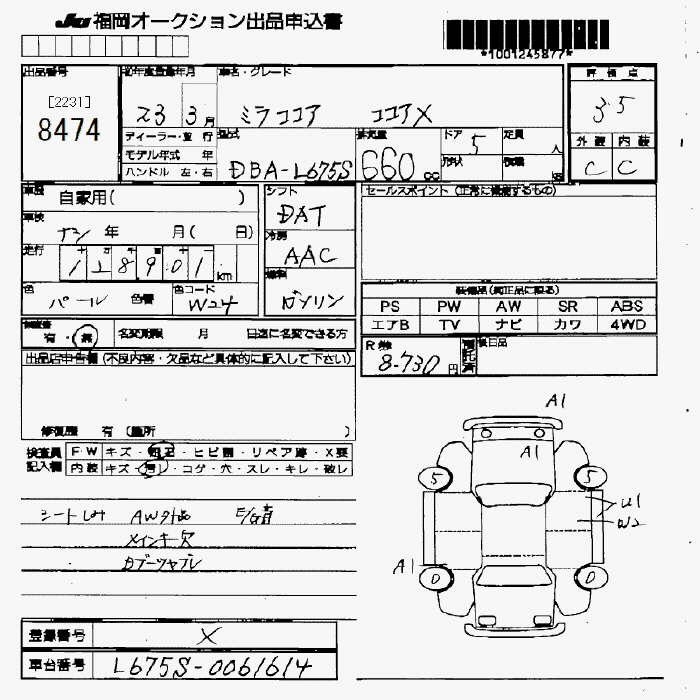 JU 福岡オークション出品申込書
*1001245877*
出品番号
[2231]
8474
初年度登録年月
23 3月
ディーラー・並行
モデル年式 年
ハンドル 左・右
車名・グレード
ミラココア ココアX
型式
DBA-L675S
排気量
660 cc
ドア 5
形状
定員 人
積載 kg
評価点
3.5
外装 内装
C C
車歴
自家用( )
車検
年 月( 日)
走行
十 万 千
1 2 8 9 0 1 km
色
パール 色替
色コード
W24
シフト
DAT
冷房
AAC
燃料
ガソリン
セールスポイント (正常に機能するもの)
装備品(純正品に限る)
PS PW AW SR ABS
エアB TV ナビ カワ 4WD
有・無 名変期限 月 日迄に名変できる方
R券
8,730円
預託済
後日品
出品店申告欄(不良内容・欠品など具体的に記入して下さい)
修復歴 有(箇所 )
検査員記入欄
F/W キズ・飛石・ヒビ割・リペア跡・X要
内装 キズ・汚れ・コゲ・穴・スレ・キレ・破レ
シートしみ AW外品 E/G音
メインキー欠
カブーツヤブレ
A1
A1
5 5
U1
W2
A1
0 0
登録番号 X
車台番号 L675S-0061614